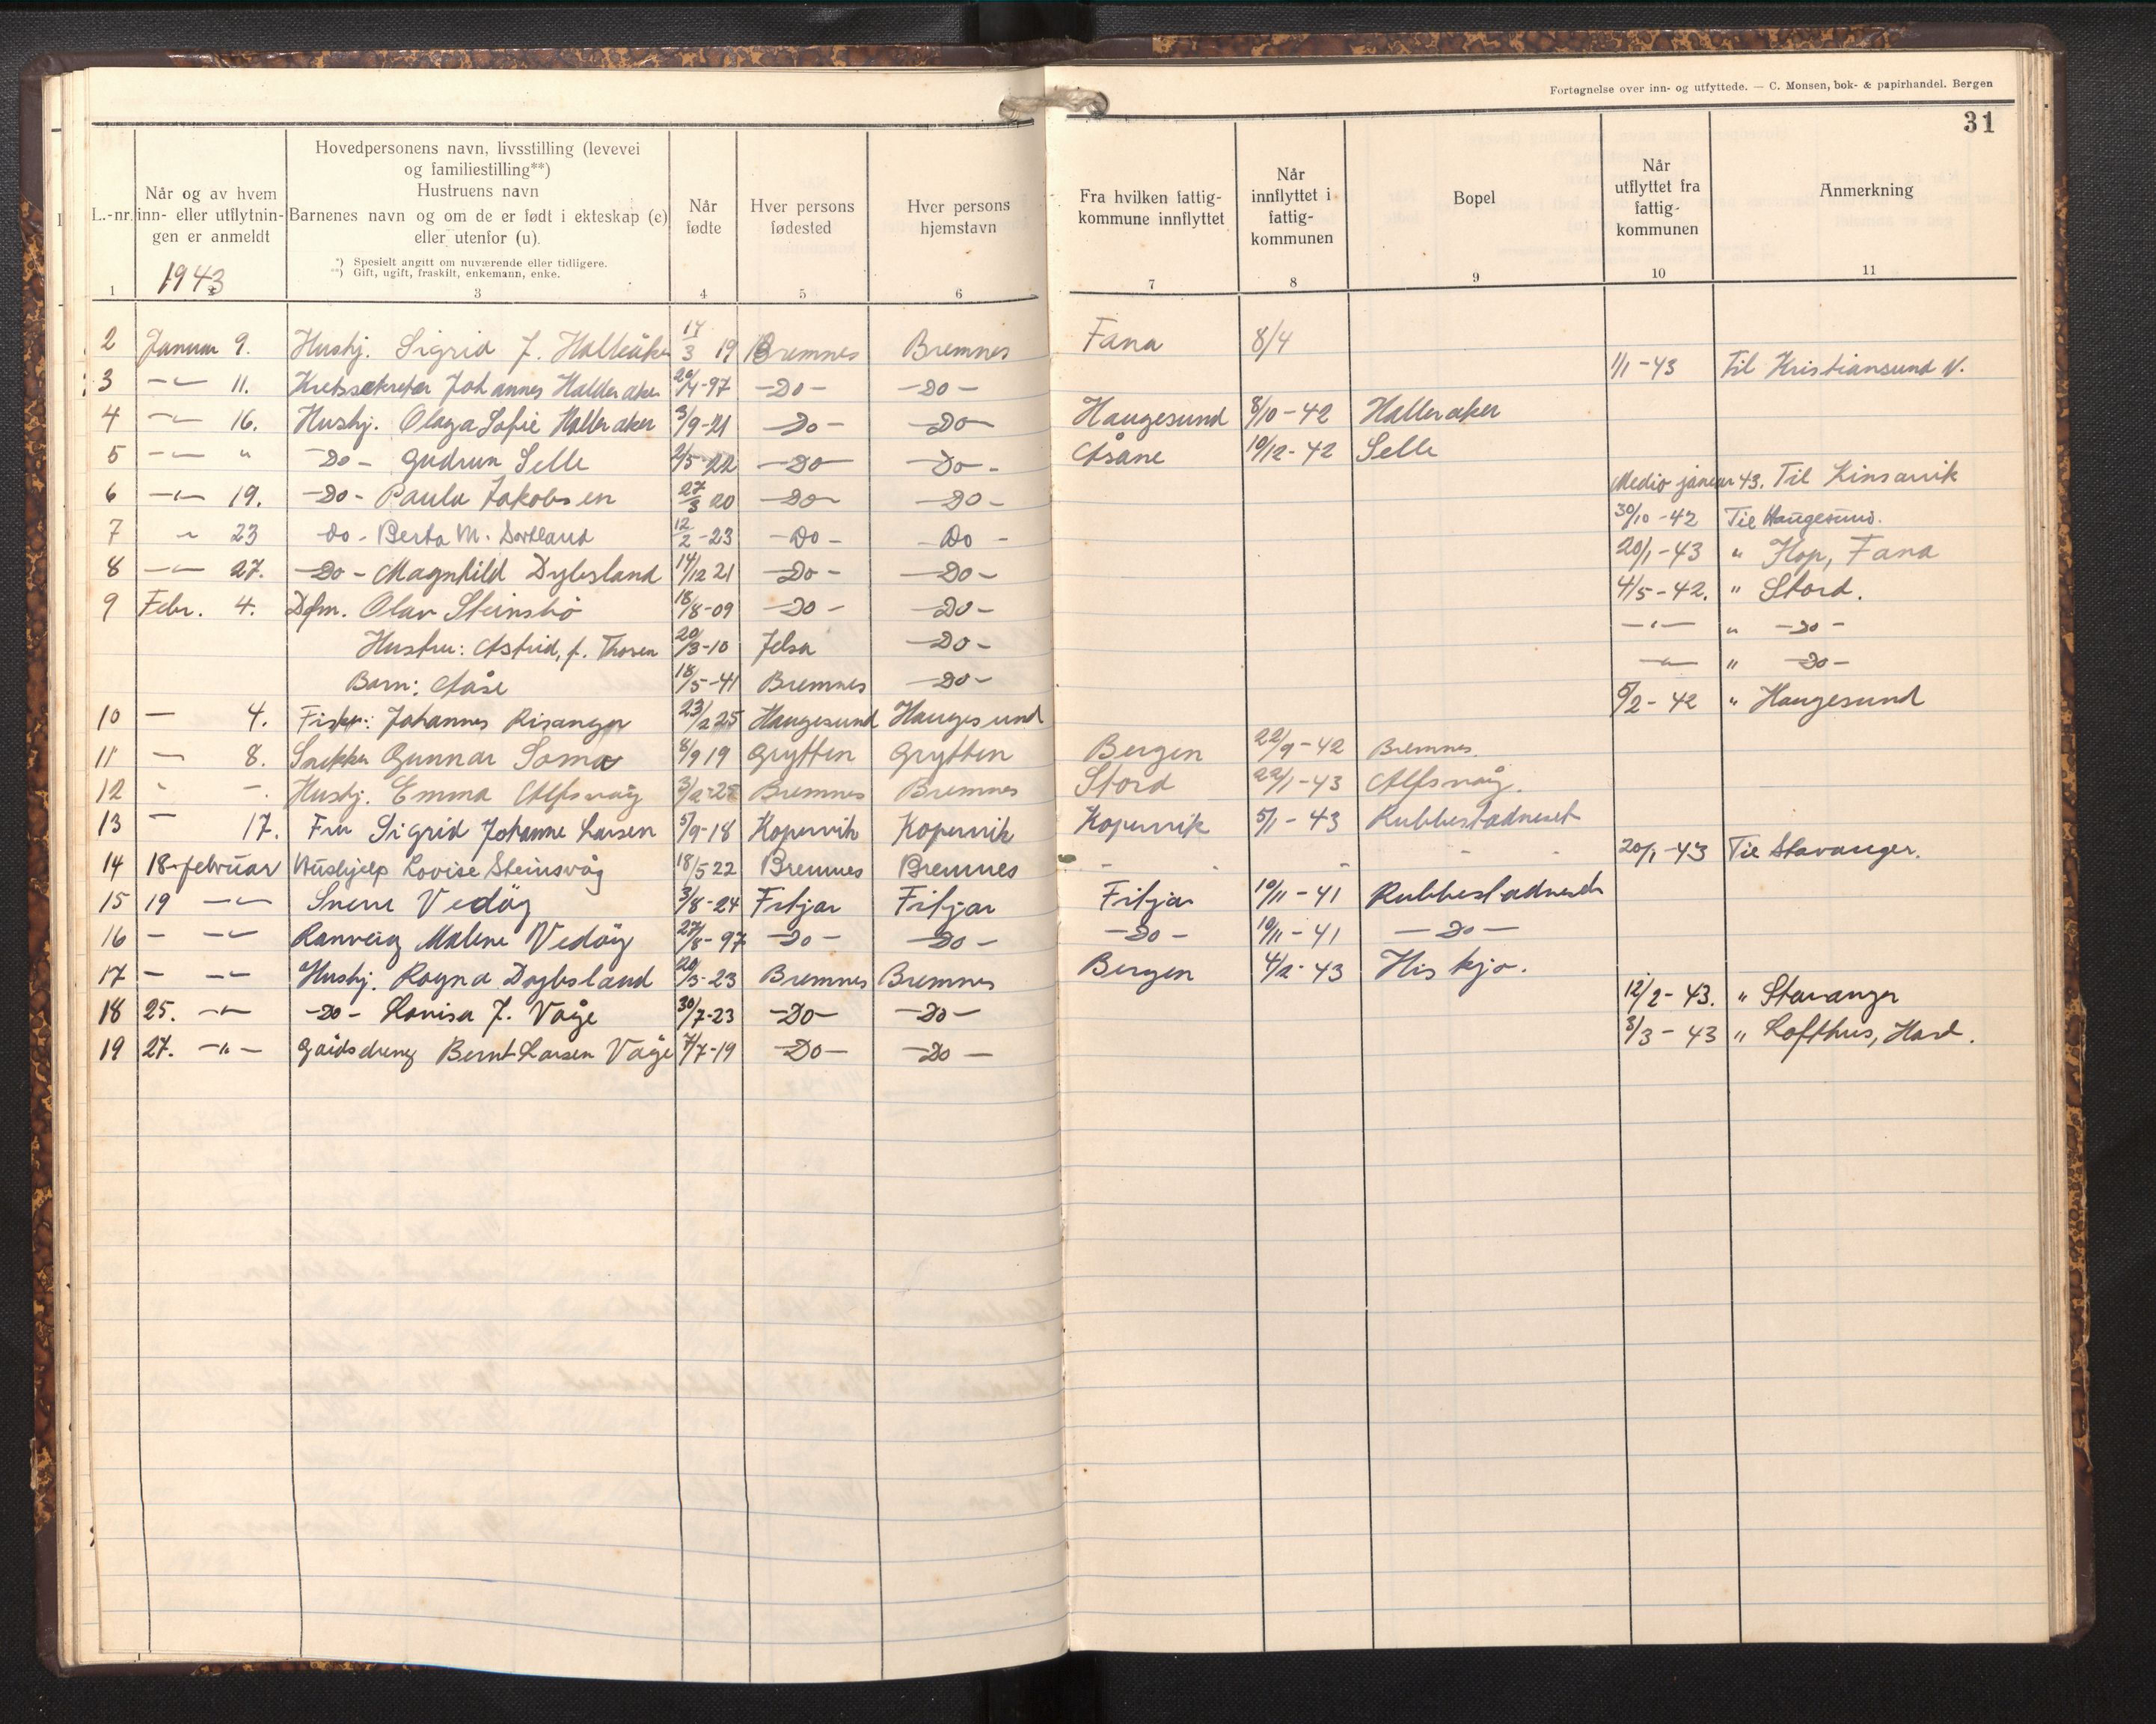 Fortegnelse over inn- og utflyttede. — C. Monsen, bok- & papirhandel. Bergen
31
L.-nr.
Når og av hvem inn- eller utflytningen er anmeldt
Hovedpersonens navn, livsstilling (levevei og familiestilling**)
Hustruens navn
Barnenes navn og om de er født i ekteskap (e) eller utenfor (u).
*) Spesielt angitt om nuværende eller tidligere.
**) Gift, ugift, fraskilt, enkemann, enke.
Når fødte
Hver persons fødested
Hver persons hjemstavn
Fra hvilken fattigkommune innflyttet
Når innflyttet i fattigkommunen
Bopel
Når utflyttet fra fattigkommunen
Anmerkning
1943
1 3 4 5 6 7 8 9 10 11
2 Januar 9. Hushj. Sigrid J. Halleåker 14/3 19 Bremnes Bremnes Fana 8/4
3 — " — 11. Kretssekretær Johannes Halderaker 20/4-97 —Do— —Do— 1/1-43 Til Kristiansund N.
4 — " — 16. Hushj. Olaga Sofie Halleraker 3/9-21 —Do— —Do— Haugesund 8/10-42 Halleraker
5 — " — " —Do— Gudrun Selle 2/5-22 —Do— —Do— Åsane 10/12-42 Selle
6 — " — 19. —Do— Paula Jakobsen 27/3 20 —Do— —Do— Medio januar 43. Til Kinsarvik
7 " 23 Do- Berta M. Sortland 12/2-23 —Do— Do — 30/10-42 Til Haugesund.
8 — " — 27. —Do— Magnhild Dybsland 14/12 21 —Do— —Do— 20/1-43 " Hop, Fana
9 Febr. 4. Olav Steinsbø 18/8-09 —Do— —Do— 4/5-42. " Stord.
Hustru: Astrid, f. Thorsen 20/3-10 Jelsa —Do— — " — " —Do—
Barn: Aase 18/5-41 Bremnes —Do— — " — " —Do—
10 — 4. Fisker: Johannes Risanger 23/2 25 Haugesund Haugesund 5/2-42 " Haugesund
11 — 8. Snekker Gunnar Soma 8/9 19 Grytten Grytten Bergen 22/9-42 Bremnes
12 " —. Hushj. Emma Alfsvåg Bremnes Bremnes Stord 22/1-43 Alfsvåg.
13 — 17. Fru Sigrid Johanne Larsen 5/9-18 Kopervik Kopervik Kopervik 5/1-43 Rubbestadneset
14 18 februar Hushjelp Lovise Steinsvåg 18/5 22 Bremnes Bremnes - - - - 20/1-43 Til Stavanger.
15 19 — " — Sverre Vedøy 3/8-24 Fitjar Fitjar Fitjar 10/11-41 Rubbestadneset
16 — — " — Ranveig Malene Vedøy 27/8-97 —Do— —Do— —Do— 10/11-41 —Do—
17 — — " — Hushj. Ragna Dybsland 20/3-23 Bremnes Bremnes Bergen 4/2-43 Hiskjo.
18 25. — " — —Do— Lovisa J. Våge 30/7-23 —Do— —Do— 12/2-43. " Stavanger
19 27. — " — Gårdsdreng Bernt Larsen Våge 7/7-19 —Do— —Do— 3/3-43 " Lofthus, Hard.